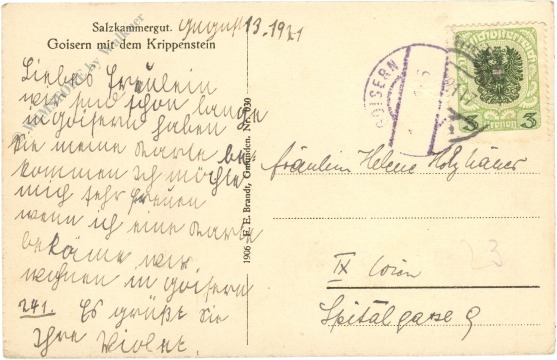 Salzkammergut.
Goisern mit dem Krippenstein
August 13. 1921
Liebes Fräulein
wir sind schon lange
in Goisern haben
Sie meine Karte be
kommen ich möchte
mich sehr freuen
wenn ich eine Karte
bekäme wir
wohnen in Goisern
241. Es grüßt Sie
Ihre Violet.
1906 F. E. Brandt, Gmunden. Nr. 630
GOISERN
3 3
Kronen
Fräulein Helene Holzhauer
IX Wien
Spitalgasse 9
23